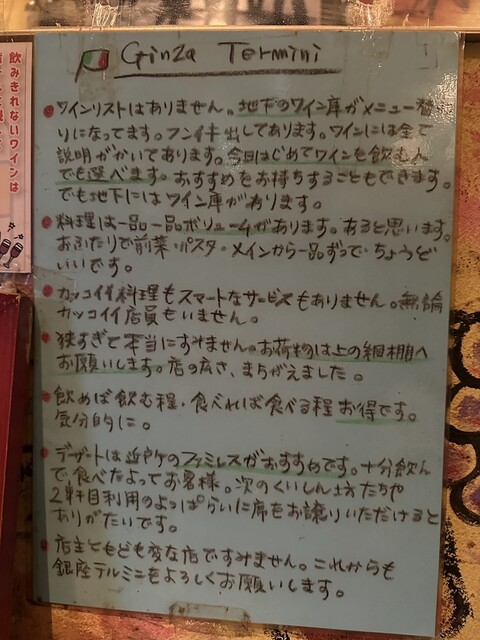 Ginza Termini
ワインリストはありません。地下のワイン庫がメニュー替
りになってます。フンイキ出してあります。ワインには全て
説明がかいてあります。今日はじめてワインを飲む人
でも選べます。おすすめをお持ちすることもできます。
でも地下にはワイン庫があります。
料理は一品一品ボリュームがあります。あると思います。
おふたりで前菜・パスタ・メインから一品ずつで、ちょうど
いいです。
カッコイイ料理もスマートなサービスもありません。無論
カッコイイ店員もいません。
狭すぎて本当にすみません。お荷物は上の網棚へ
お願いします。店の広さ、まちがえました。
飲めば飲む程、食べれば食べる程お得です。
気分的に。
デザートは近所のファミレスがおすすめです。十分飲ん
で、食べたよってお客様。次のくいしん坊たちや
2軒目利用のよっぱらいに席をお譲りいただけると
ありがたいです。
店主ともども変な店ですみません。これからも
銀座テルミニをよろしくお願いします。
飲みきれないワインは